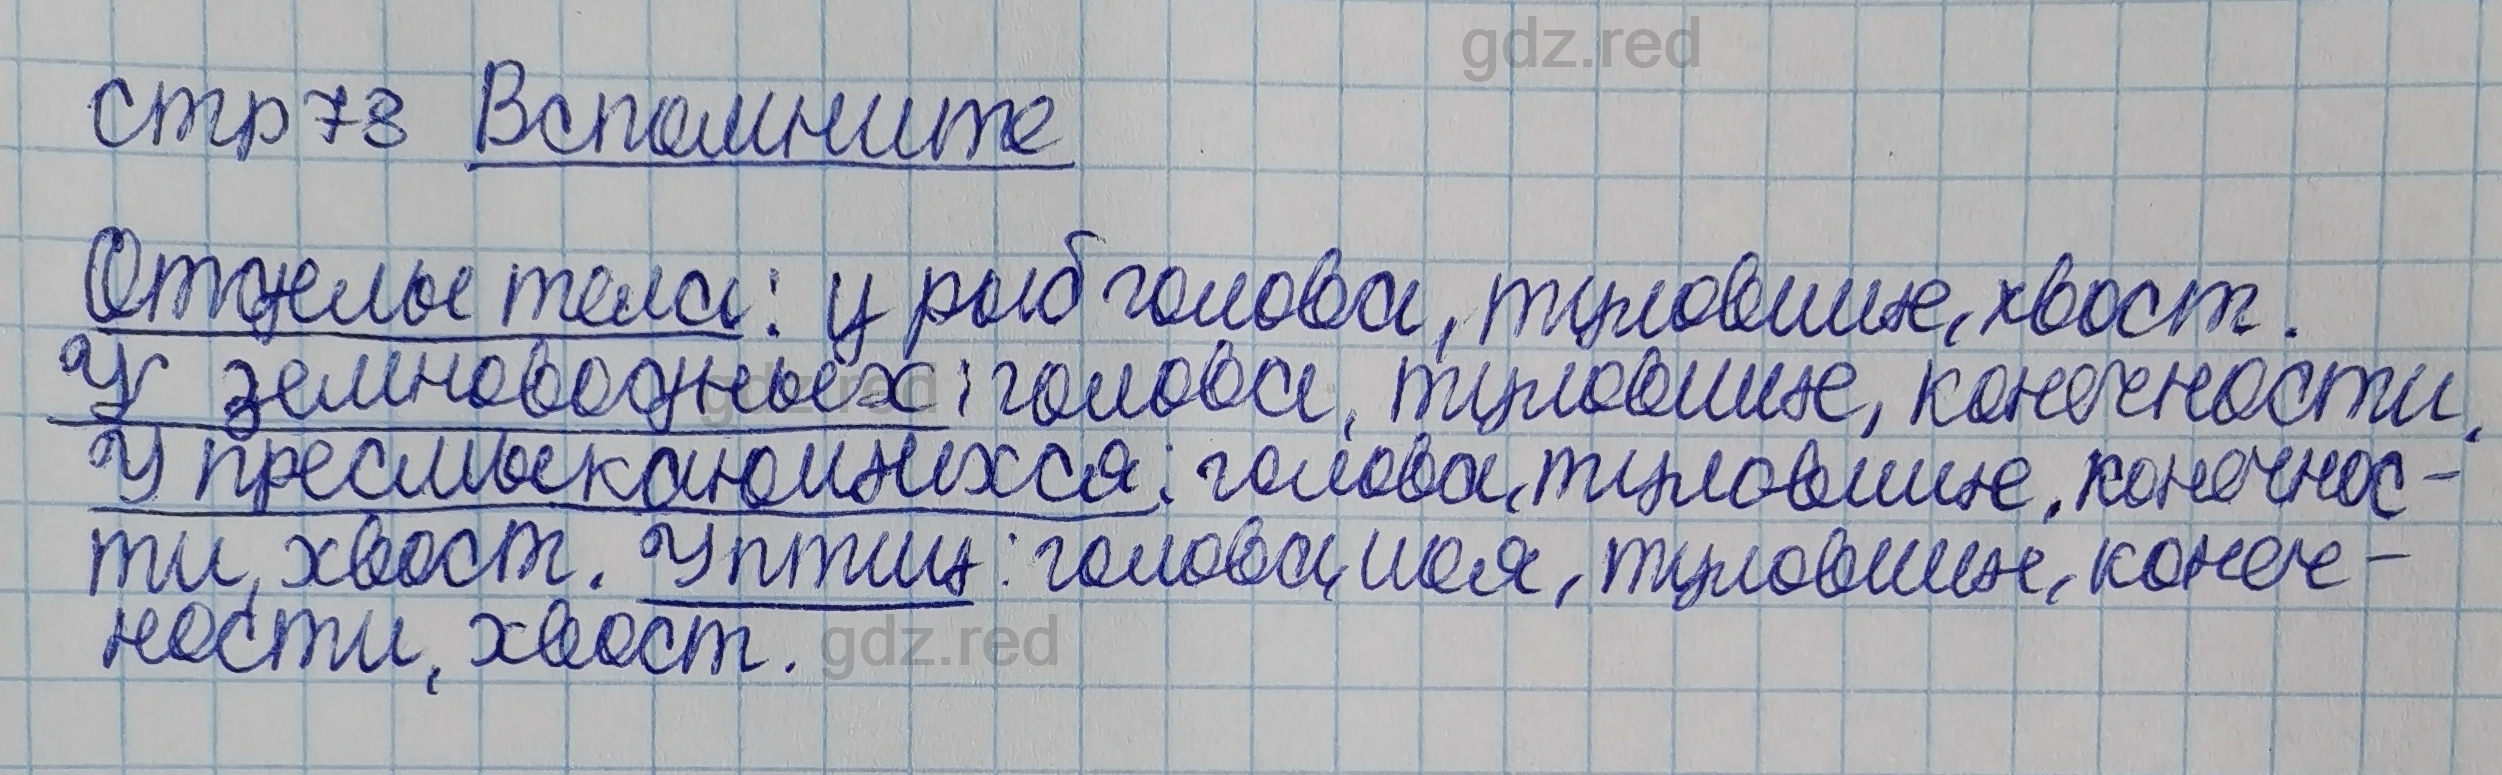 gdz.red
стр 78 Вспомните
Отделы тела: у рыб голова, туловище, хвост.
У земноводных: голова, туловище, конечности.
gdz.red
У пресмыкающихся: голова, туловище, конечнос-
ти, хвост. У птиц: голова, шея, туловище, конеч-
ности, хвост.
gdz.red